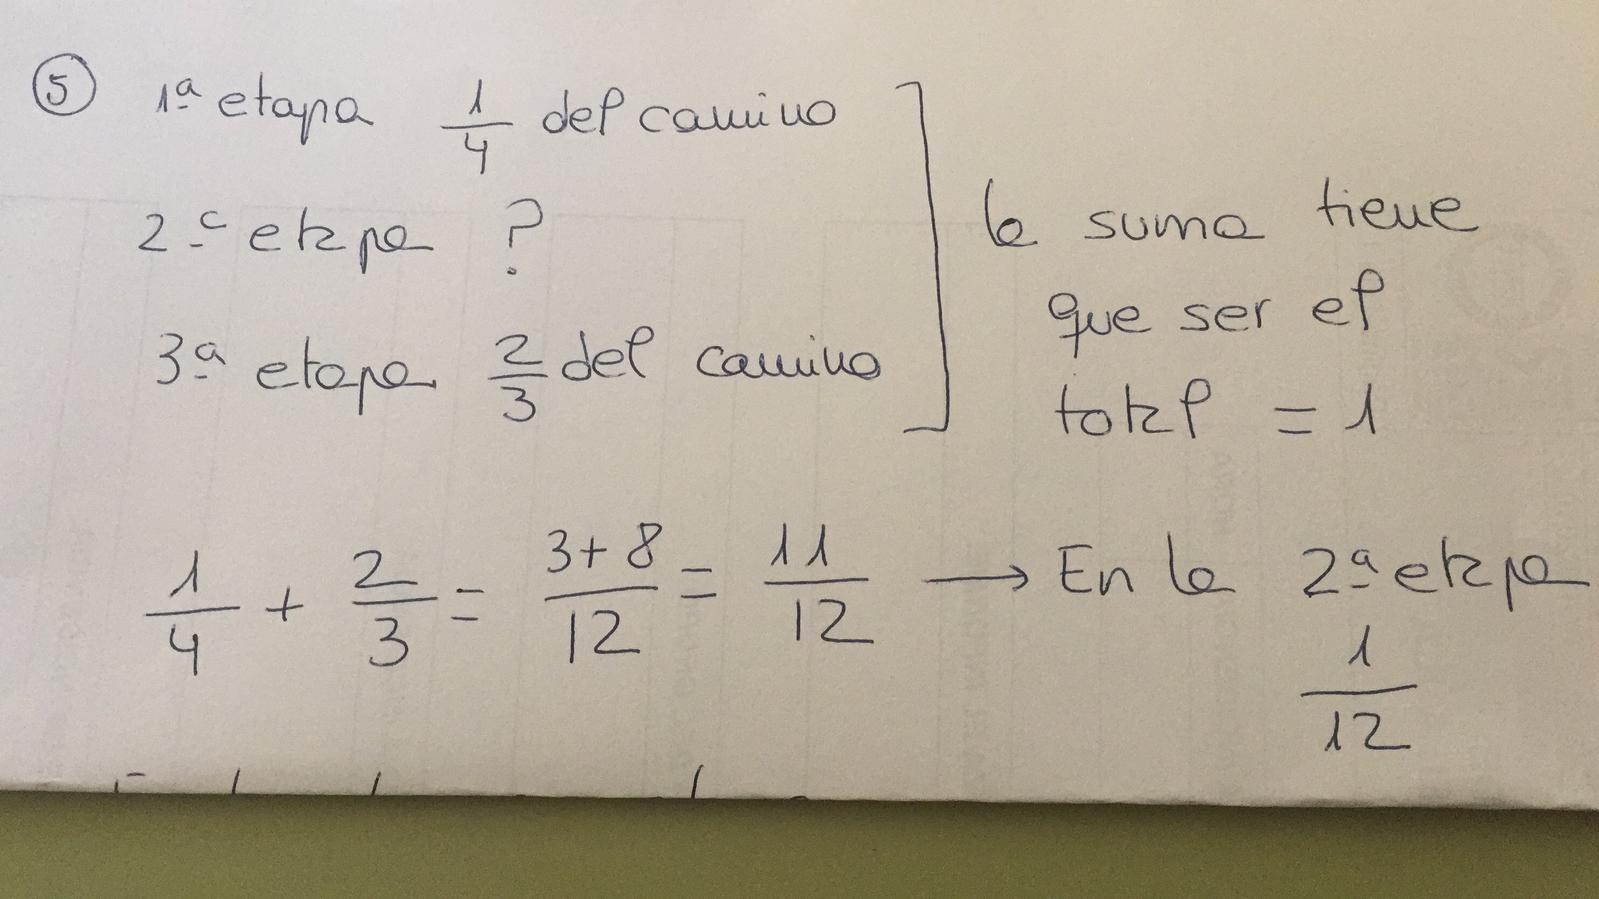 ⑤ 1ª etapa 1/4 del camino
2ª etapa ?
3ª etapa 2/3 del camino
la suma tiene
que ser el
total = 1
1/4 + 2/3 = 3+8/12 = 11/12 → En la 2ª etapa
1/12